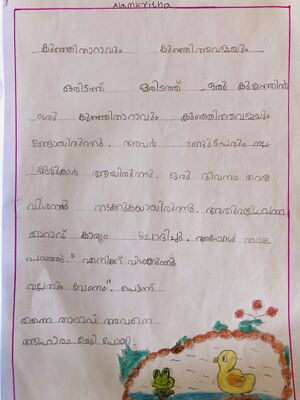 Alamkritha
കുഞ്ഞിതാറാവും കുഞ്ഞിത്തവളയും
ഒരിടത്ത് ഒരിടത്ത് ഒരു കുളത്തിൽ
ഒരു കുഞ്ഞിതാറാവും കുഞ്ഞിത്തവളയും
ഉണ്ടായിരുന്നു. അവർ രണ്ടുപേരും നല്ല
കൂട്ടുകാർ ആയിരുന്നു. ഒരു ദിവസം തവള
വിശന്നു നടക്കുകയായിരുന്നു. അതുവഴിവന്ന
താറാവ് കാര്യം ചോദിച്ചു. അപ്പോൾ തവള
പറഞ്ഞു. "എനിക്ക് വിശക്കുന്നു
വല്ലതും വേണം". പെട്ടന്ന്
തന്നെ താറാവ് അവനെ
ആഹാരം തേടി പോയി.